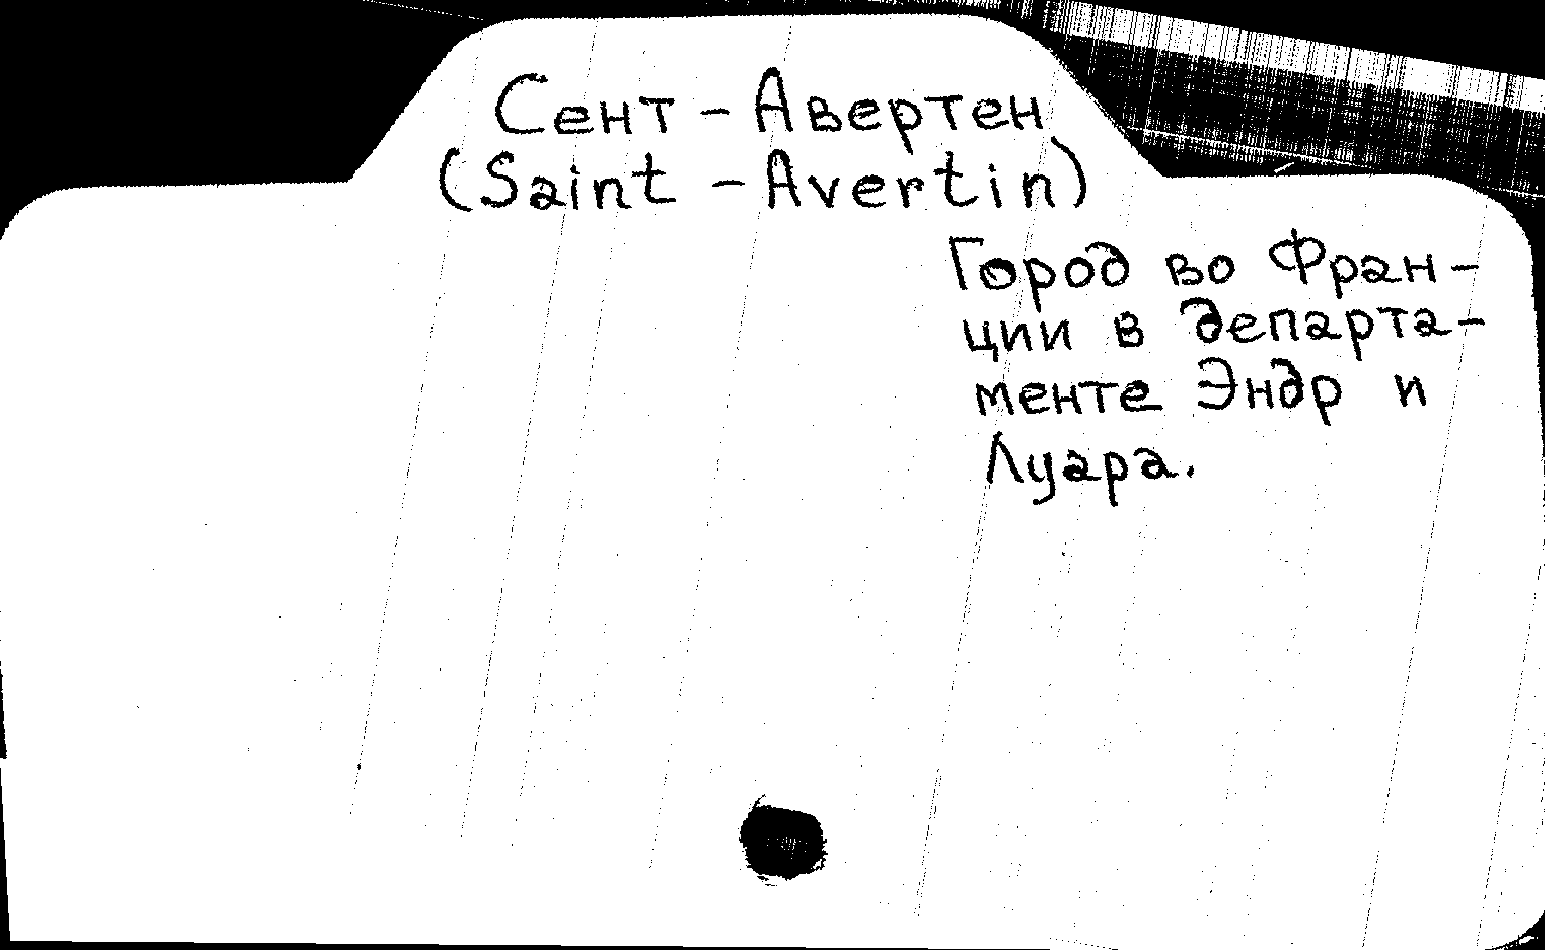 Сент - Авертен
(Saint - Avertin)
Город во Фран-
ции в департа-
менте Эндр и
Луара.